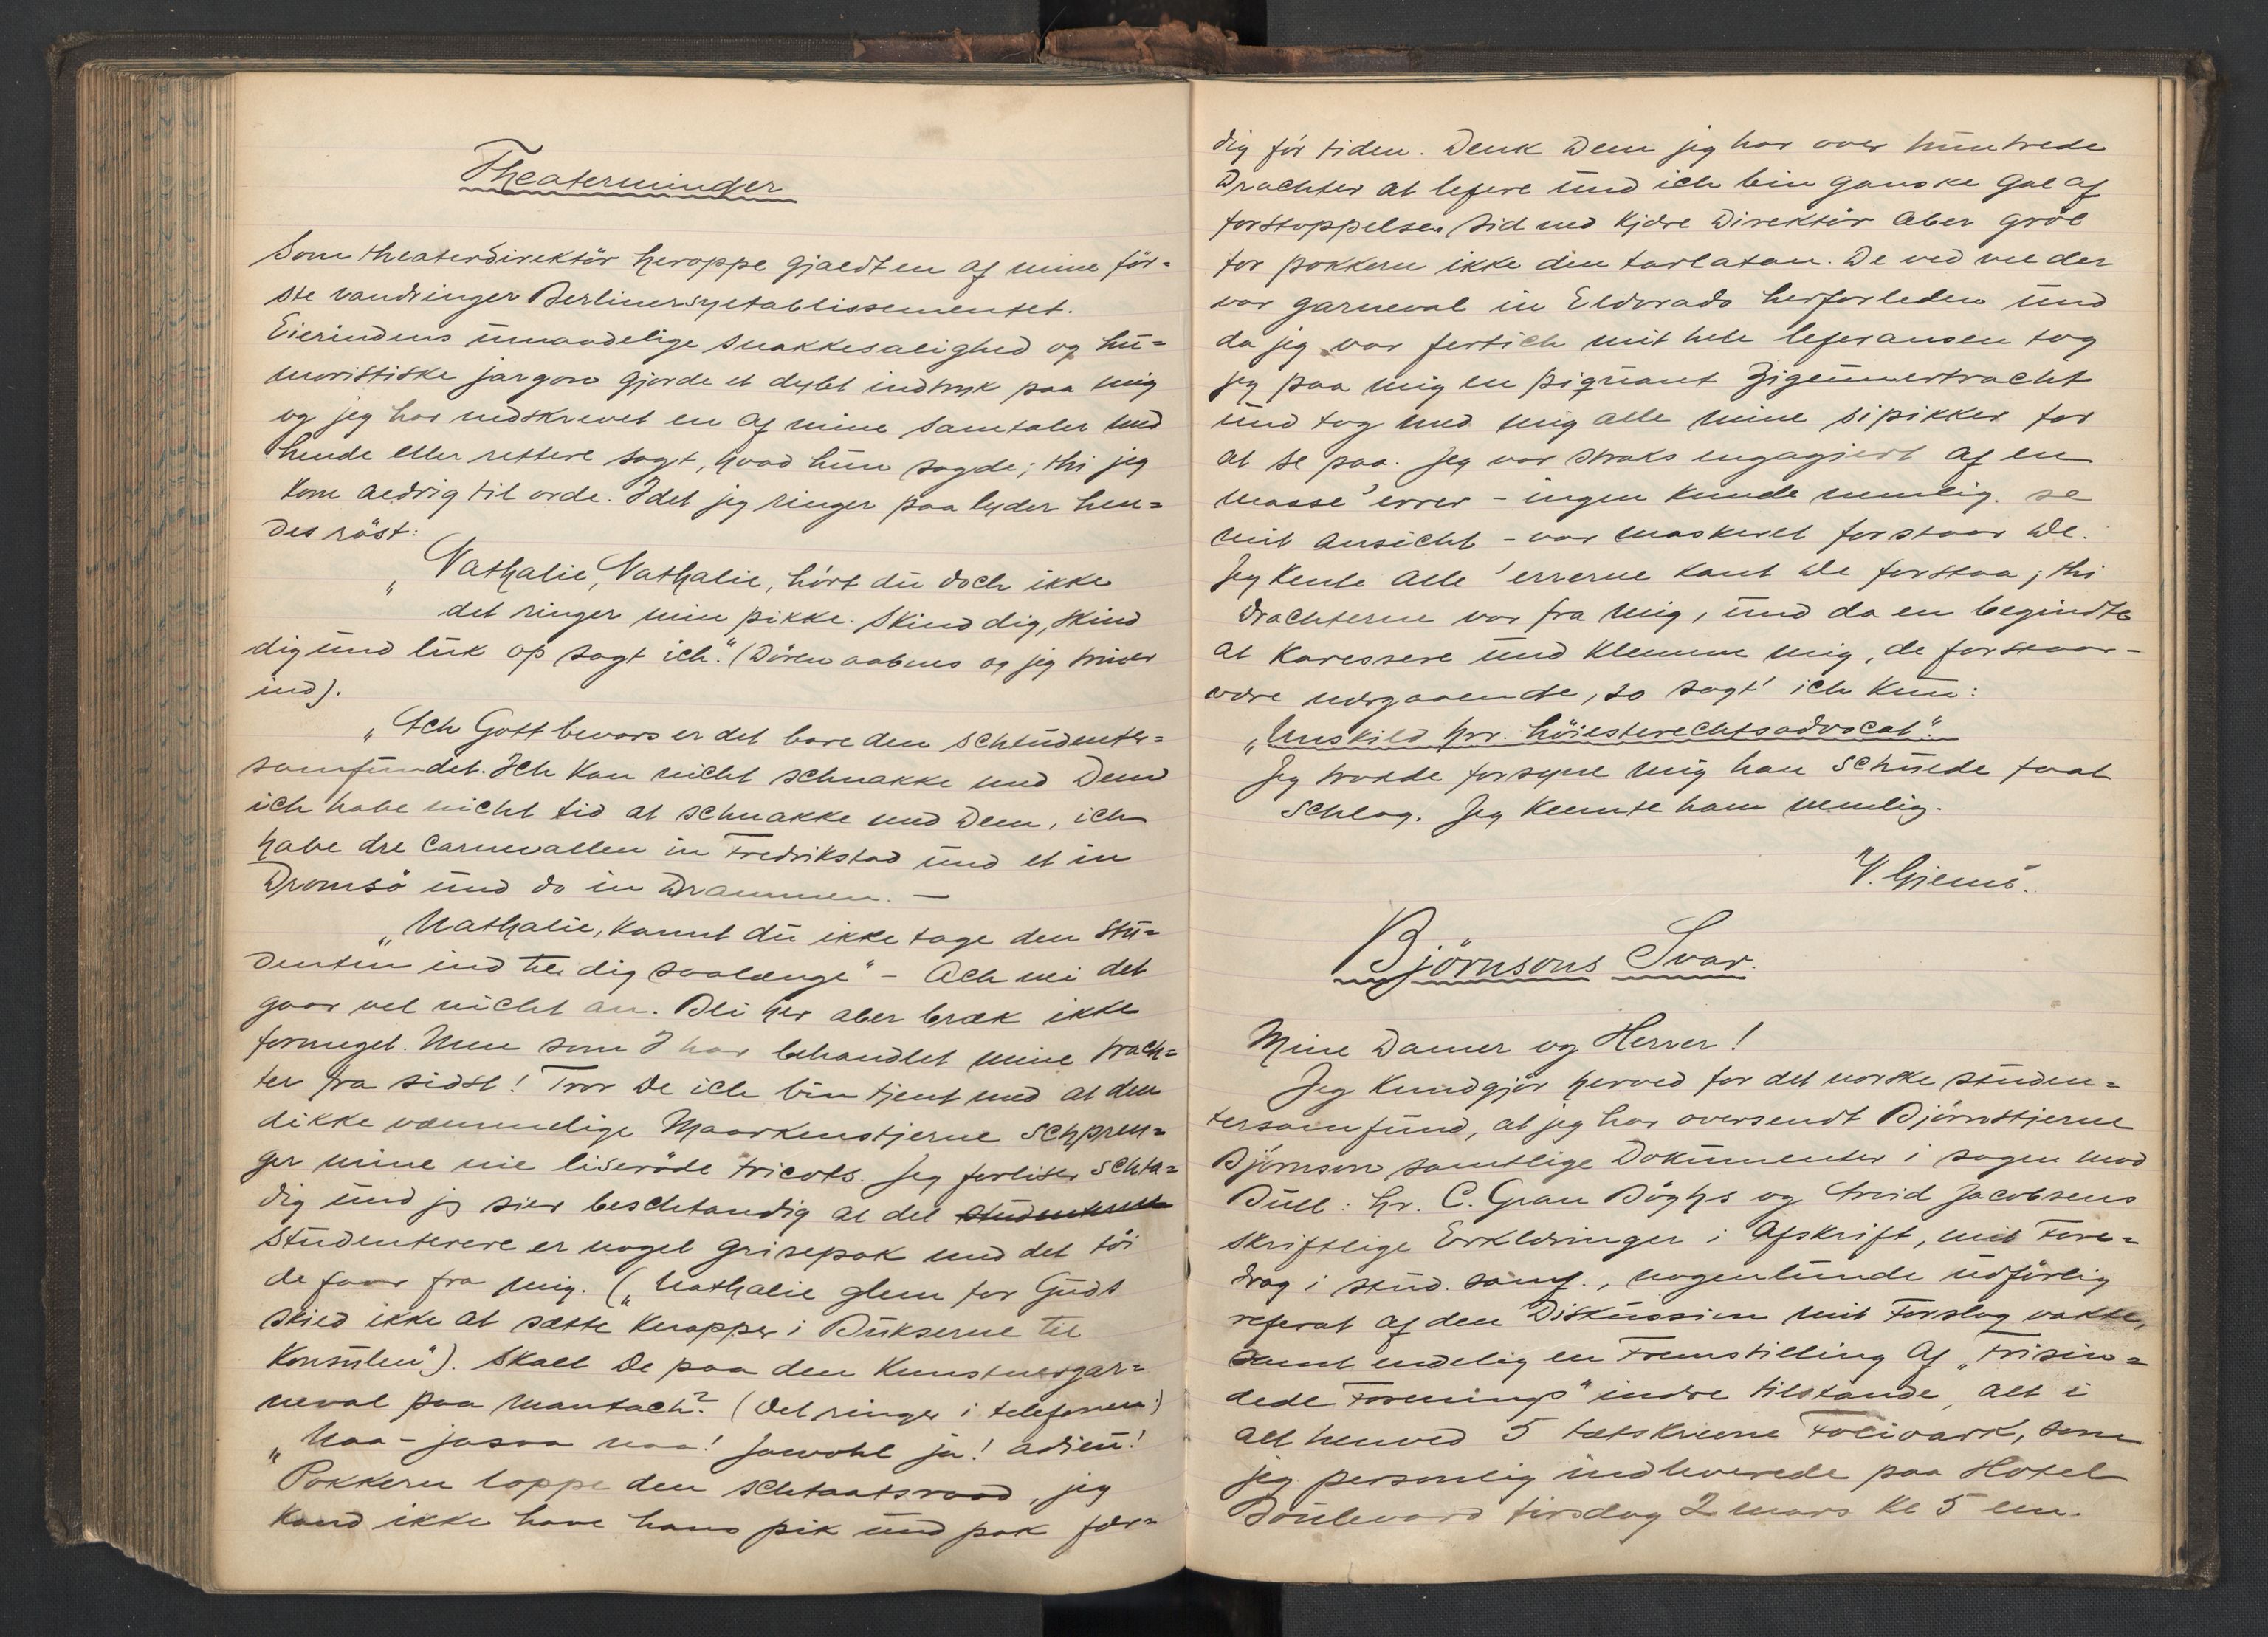 Theaterminder
Som theaterdirektör heroppe gjaldt en af mine för=
ste vandringer Berlinersyetablissementet.
Eierindens umaadelige snakkesalighed og hu=
moristiske jargon gjorde et dybt indtryk paa mig
og jeg har nedskrevet en af mine samtaler med
hende eller rettere sagt, hvad hun sagde; thi jeg
kom aldrig til orde. Idet jeg ringer paa lyder hen=
des röst:
„Nathalie, Nathalie, hört du doch ikke
det ringer min pikke. Skind dig, skind
dig und luk op sagt ich." (Dören aabnes og jeg træder
ind).
„Ach Gott bevars er det bare den Schtudenter=
samfundet. Ich kan nicht schnakke med Dem
ich habe nicht tid at schnakke med Dem, ich
habe dre Carnevallen in Fredrikstad und et in
Dromsö und do in Drammen. —
„Nathalie, kannst du ikke tage den Stu=
denten ind til dig saalænge" - Ach nei det
gaar vel nicht an. Bli her aber bræk ikke
formeget. Men som I har behandlet mine trach=
ter fra sidst! Tror De ich bin tjent med at den
dikke væmmelige Maarkenstjerne schpren=
ger mine nie liseröde tricots. Jeg forliser schta=
dig und jeg sier beschtandig at det studenterne
studenterere er noget grisepak med det töi
de faar fra mig. („Nathalie glem for Gudt
skied ikke at sætte knapper i Bukserne til
Konsulen"). Skall De paa den Kunstnergar=
neval paa mantach? (Det ringer i telefonen:)
„Naa - jasaa naa! Jawohl ja! adieu!
Pokkern loppe den schtaatsraad, jeg
kand ikke have hans pik und pak fær=
dig för tiden. Denk Dem jeg har over huntrede
Drachter at lefere und ich bin ganske gal af
forstoppelse. Sid ned kjære Direktör aber gröl
for pokkern ikke den tarlatan. De ved vel der
var garneval in Eldorado herforleden und
da jeg var fertich mit hele leferansen tog
jeg paa mig en piquant Zigeunertracht
und tog med mig alle mine sipikker for
at se paa. Jeg var straks engagiert af en
masse 'errer - ingen kunde nemlig se
mit ansicht - var maskeret forstaar De.
Jeg kente alle 'errerne kant De forstaa; thi
drachterne var fra mig, und da en begindte
at karessere und klemme mig, de forstaar -
være nærgaaende, so sagt' ich kun:
„Unskild hrr. höiesterechtsadvocat".
Jeg trodde forsyne mig han schulde faat
schlag. Jeg kennte ham nemlig.
V. Gjems.
Björnsons Svar.
Mine Damer og Herrer!
Jeg kundgjör herved for det norske studen=
tersamfund, at jeg har oversendt Björnstjerne
Björnson samtlige Dokumenter i sagen mod
Bull: hr. C. Gran Böghs og Arvid Jacobsens
skriftlige Erklæringer i Afskrift, mit Fore=
drag i stud. samf., nogenlunde udförlig
referat af den Diskussion mit Forslag vakte,
samt endelig en Fremstilling af „Frisin=
dede Forenings" indre tilstande, alt i
alt henved 5 tætskrevne Folioark, som
jeg personlig indleverede paa Hotel
Boulevard tirsdag 2 mars kl 5 em.